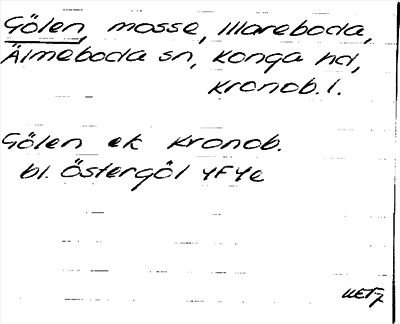 Gölen, mosse, Mareboda,
Älmeboda sn, Konga hd,
Kronob. l.
Gölen ek Kronob.
bl. Östergöl 4F4e